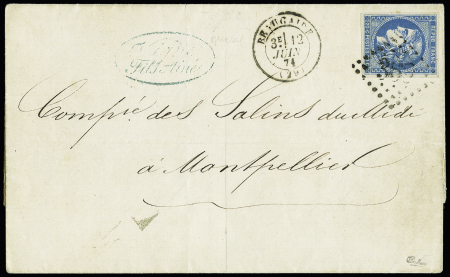 Fils Ainé
BEAUCAIRE
3E
12
JUIN
71
Compie des Salins du Midi
à Montpellier